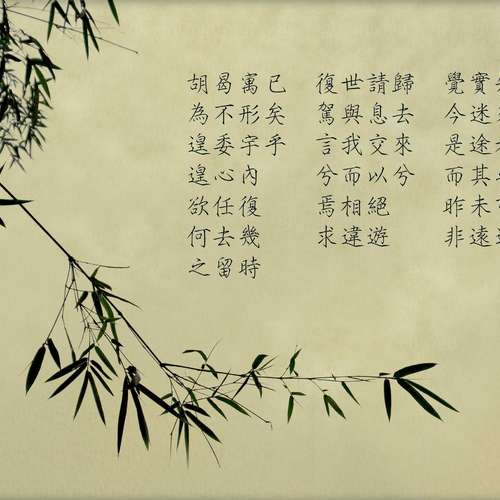 實迷途其未遠
覺今是而昨非
歸去來兮
請息交以絕遊
世與我而相違
復駕言兮焉求
已矣乎
寓形宇內復幾時
曷不委心任去留
胡為遑遑欲何之